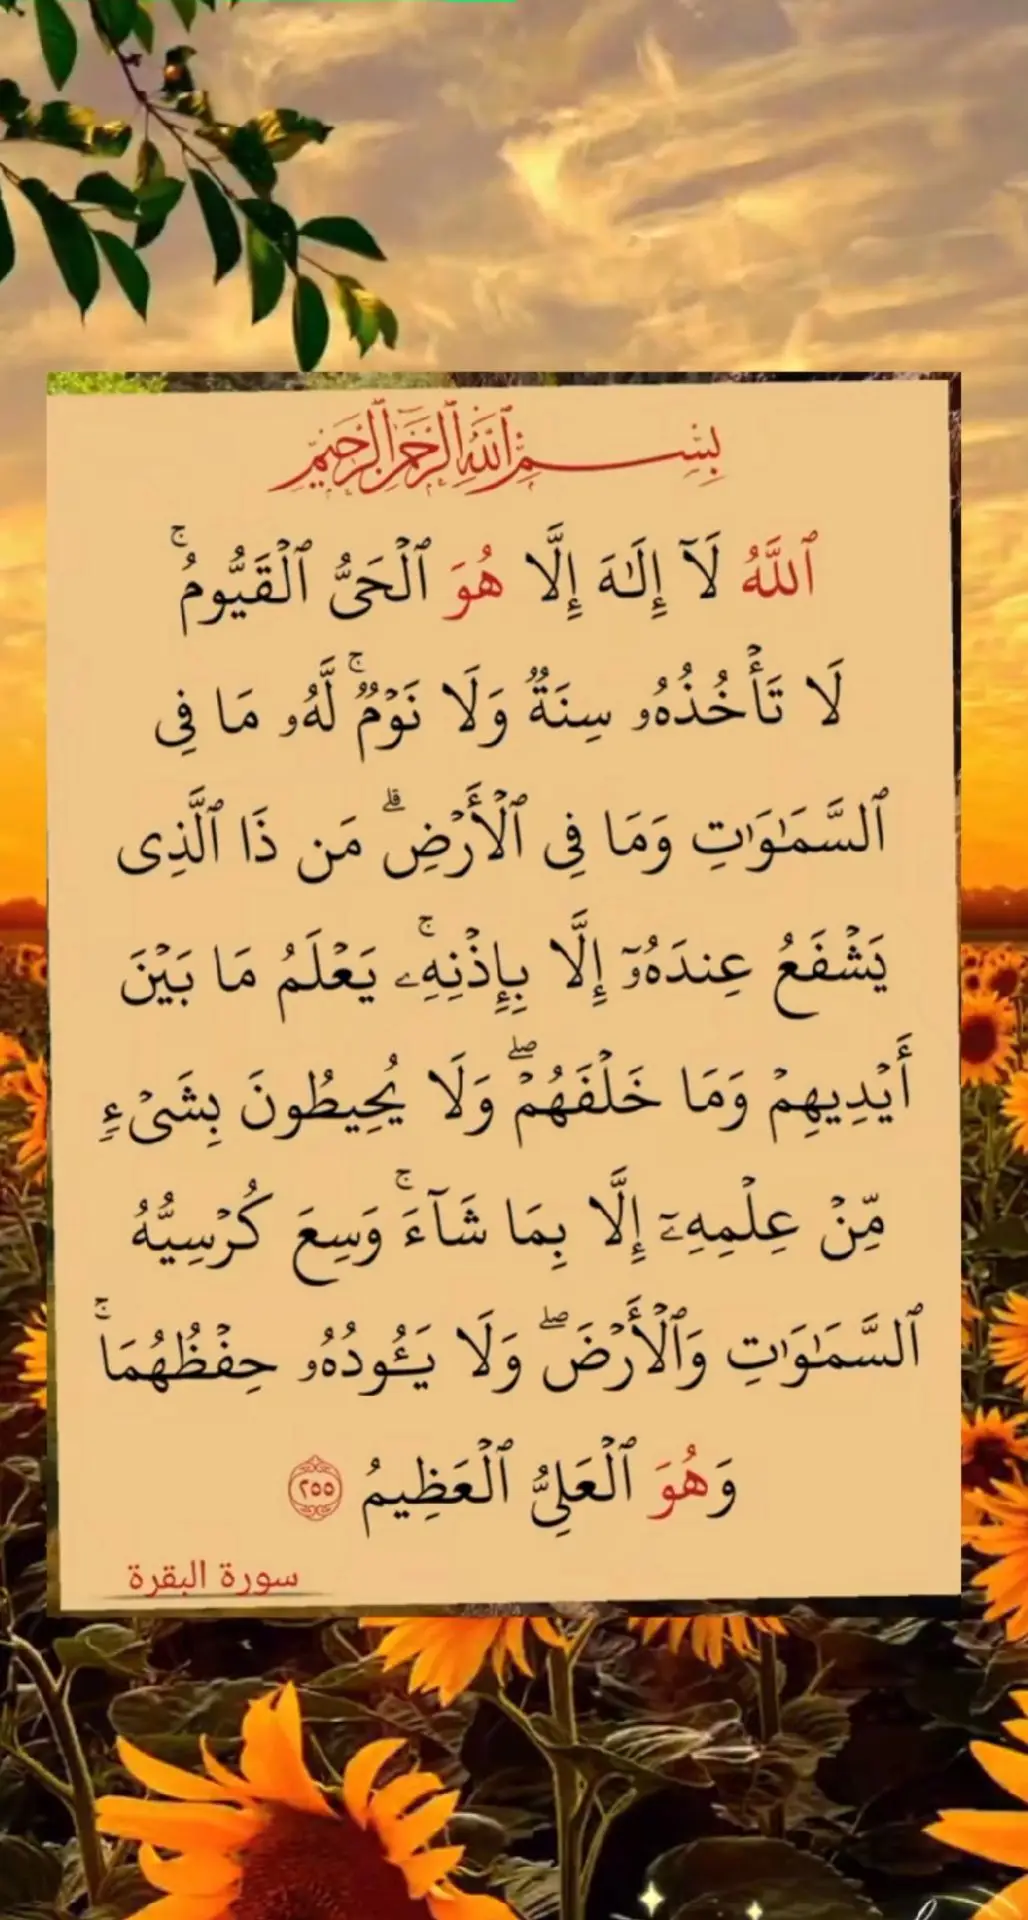 بِسْمِ ٱللَّهِ ٱلرَّحْمَٰنِ ٱلرَّحِيمِ
ٱللَّهُ لَآ إِلَٰهَ إِلَّا هُوَ ٱلْحَىُّ ٱلْقَيُّومُ ۚ
لَا تَأْخُذُهُۥ سِنَةٌ وَلَا نَوْمٌ ۚ لَّهُۥ مَا فِى
ٱلسَّمَٰوَٰتِ وَمَا فِى ٱلْأَرْضِ ۗ مَن ذَا ٱلَّذِى
يَشْفَعُ عِندَهُۥٓ إِلَّا بِإِذْنِهِۦ ۚ يَعْلَمُ مَا بَيْنَ
أَيْدِيهِمْ وَمَا خَلْفَهُمْ ۖ وَلَا يُحِيطُونَ بِشَىْءٍ
مِّنْ عِلْمِهِۦٓ إِلَّا بِمَا شَآءَ ۚ وَسِعَ كُرْسِيُّهُ
ٱلسَّمَٰوَٰتِ وَٱلْأَرْضَ ۖ وَلَا يَـُٔودُهُۥ حِفْظُهُمَا ۚ
وَهُوَ ٱلْعَلِىُّ ٱلْعَظِيمُ ٢٥٥
سورة البقرة